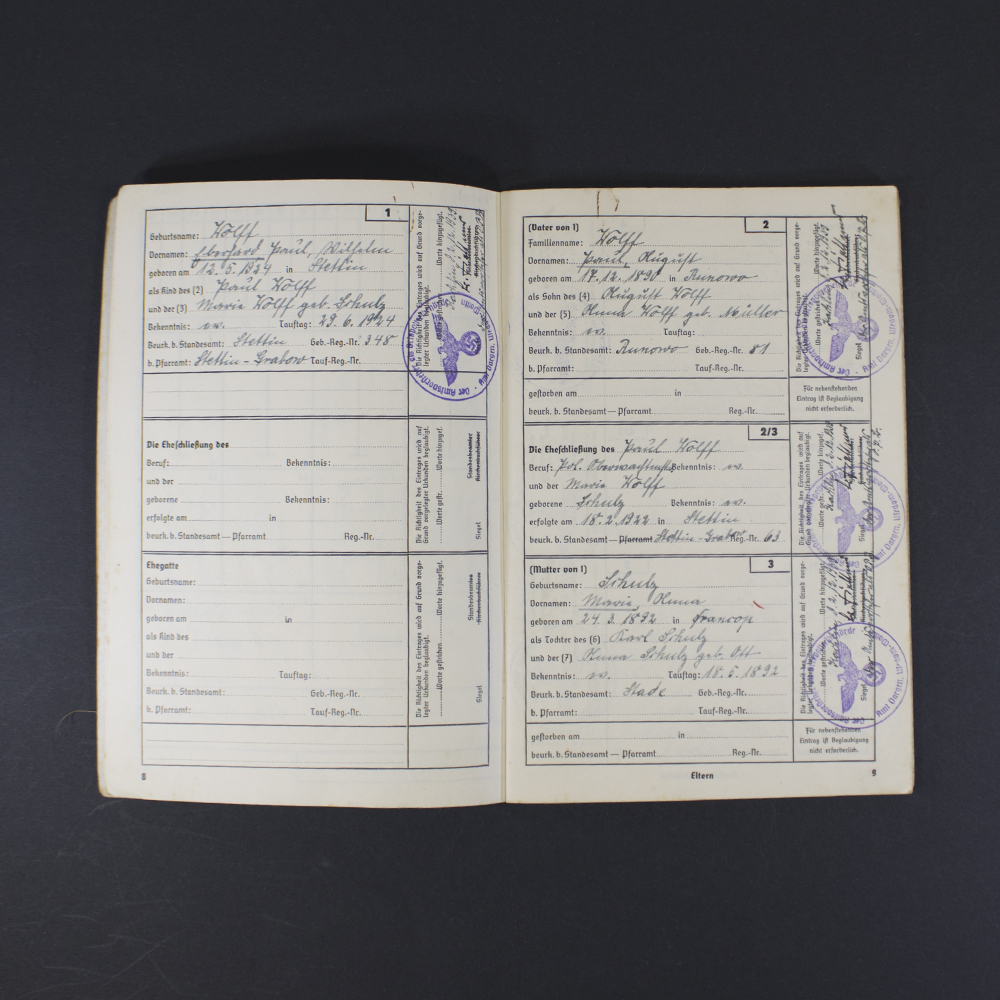 1
Geburtsname: Wolff
Vornamen: Eberhard Paul, Wilhelm
geboren am 12.5.1924 in Stettin
als Kind des (2) Paul Wolff
und der (3) Maria Wolff geb. Schulz
Bekenntnis: ev. Tauftag: 29.6.1924
Beurk. b. Standesamt: Stettin Geb.-Reg.-Nr. 348
b. Pfarramt: Stettin-Grabow Tauf-Reg.-Nr.
Die Richtigkeit des Eintrages wird auf Grund vorge-
legter Urkunden beglaubigt.
Worte gestrichen. Worte hinzugefügt.
Die Eheschließung des
Beruf: Bekenntnis:
und der
geborene Bekenntnis:
erfolgte am in
beurk. b. Standesamt — Pfarramt Reg.-Nr.
Die Richtigkeit des Eintrages wird auf
Grund vorgelegter Urkunden beglaubigt.
Worte gestr. Worte hinzugef.
Siegel Standesbeamter
Kirchenbuchführer
Ehegatte
Geburtsname:
Vornamen:
geboren am in
als Kind des
und der
Bekenntnis: Tauftag:
Beurk. b. Standesamt: Geb.-Reg.-Nr.
b. Pfarramt: Tauf-Reg.-Nr.
Die Richtigkeit des Eintrages wird auf Grund vorge-
legter Urkunden beglaubigt.
Worte gestrichen. Worte hinzugefügt.
Siegel Standesbeamter
Kirchenbuchführer
8
2
(Vater von 1)
Familienname: Wolff
Vornamen: Paul, August
geboren am 17.12.1890 in Runowo
als Sohn des (4) August Wolff
und der (5) Anna Wolff geb. Müller
Bekenntnis: ev. Tauftag:
Beurk. b. Standesamt: Runowo Geb.-Reg.-Nr. 81
b. Pfarramt: Tauf-Reg.-Nr.
gestorben am in
beurk. b. Standesamt — Pfarramt Reg.-Nr.
Die Richtigkeit des Eintrages wird auf Grund vorge-
legter Urkunden beglaubigt.
Worte gestrichen. Worte hinzugefügt.
Siegel
Für nebenstehenden
Eintrag ist Beglaubigung
nicht erforderlich.
2/3
Die Eheschließung des Paul Wolff
Beruf: Pol. Oberwachtmstr Bekenntnis: ev.
und der Maria Wolff
geborene Schulz Bekenntnis: ev.
erfolgte am 18.2.1922 in Stettin
beurk. b. Standesamt — Pfarramt Stettin-Grabow Reg.-Nr. 63
Die Richtigkeit des Eintrages wird auf
Grund vorgelegter Urkunden beglaubigt.
Worte gestr. Worte hinzugef.
Siegel
3
(Mutter von 1)
Geburtsname: Schulz
Vornamen: Maria Anna
geboren am 24.3.1892 in Francop
als Tochter des (6) Karl Schulz
und der (7) Anna Schulz geb. Ott
Bekenntnis: ev. Tauftag: 18.5.1892
Beurk. b. Standesamt: Stade Geb.-Reg.-Nr.
b. Pfarramt: Tauf-Reg.-Nr.
gestorben am in
beurk. b. Standesamt — Pfarramt Reg.-Nr.
Die Richtigkeit des Eintrages wird auf Grund vorge-
legter Urkunden beglaubigt.
Worte gestrichen. Worte hinzugefügt.
Siegel
Für nebenstehenden
Eintrag ist Beglaubigung
nicht erforderlich.
Eltern
9